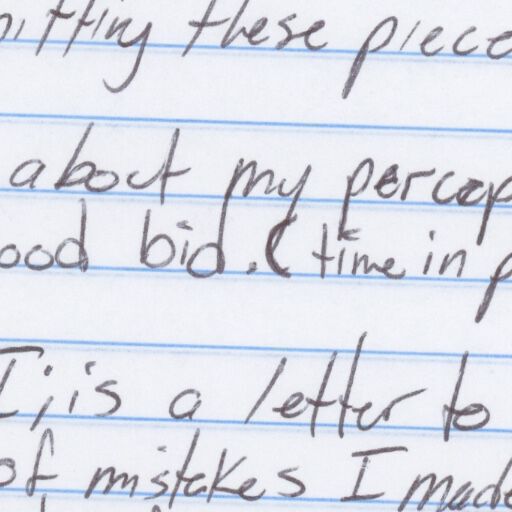 these piece
about my percep
ood bid. (time in p
I; is a letter to
of mistakes I made